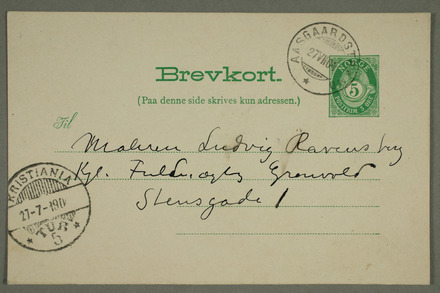 AASGAARDST
27 VII 0
NORGE
5
POSTFRIM. 5 ØRE
Brevkort.
(Paa denne side skrives kun adressen.)
Til
Maleren Ludvig Ravensberg
Kgl. Fuldmægtig Grønvold
Stensgade 1
KRISTIANIA
27-7-190
TUR
5